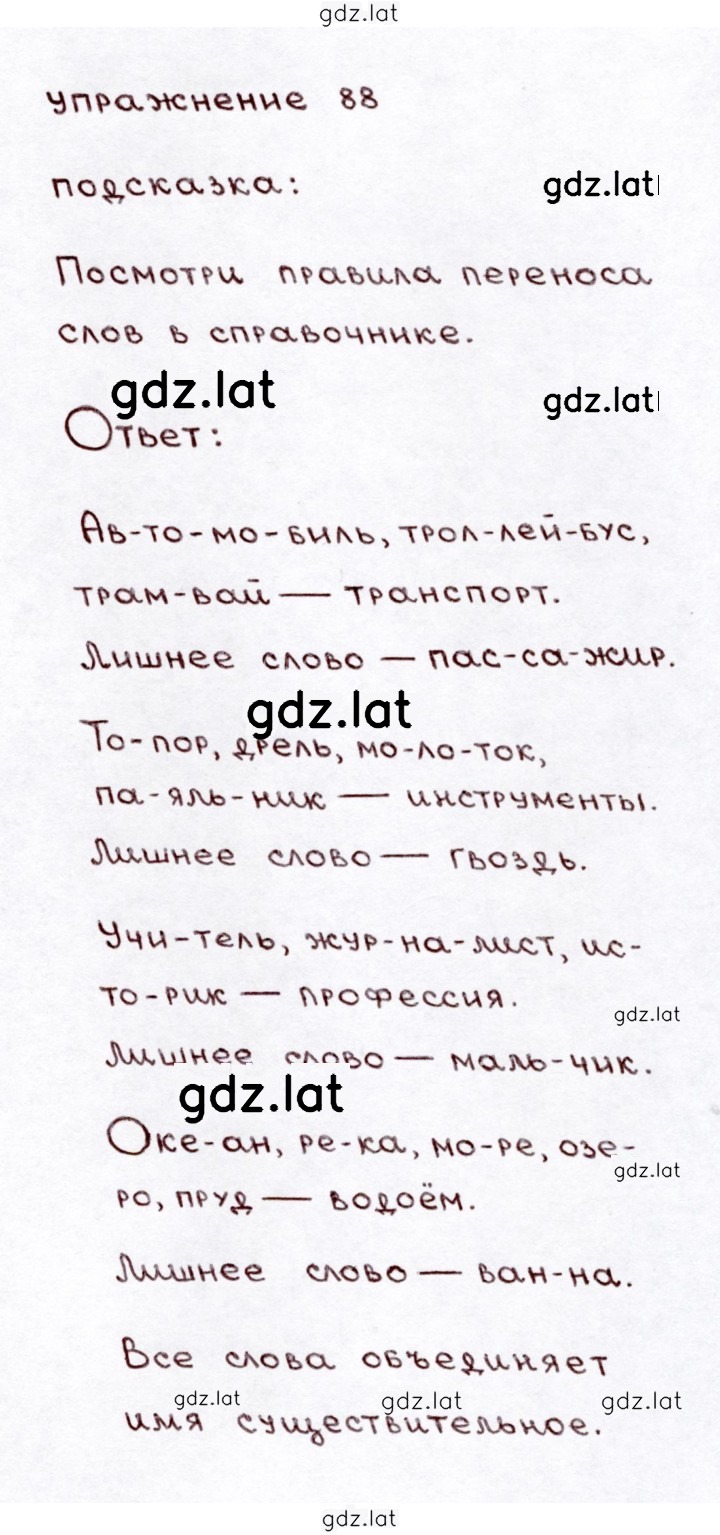 gdz.lat
упражнение 88
подсказка:
gdz.lat
Посмотри правила переноса
слов в справочнике.
gdz.lat
gdz.lat
Ответ:
Ав-то-мо-биль, трол-лей-бус,
трам-вай — транспорт.
Лишнее слово — пас-са-жир.
gdz.lat
То-пор, дрель, мо-ло-ток,
па-яль-ник — инструменты.
Лишнее слово — гвоздь.
Учи-тель, жур-на-лист, ис-
то-рик — профессия.
gdz.lat
Лишнее слово — маль-чик.
gdz.lat
Оке-ан, ре-ка, мо-ре, озе-
gdz.lat
ро, пруд — водоём.
Лишнее слово — ван-на.
Все слова объединяет
gdz.lat gdz.lat gdz.lat
имя существительное.
gdz.lat